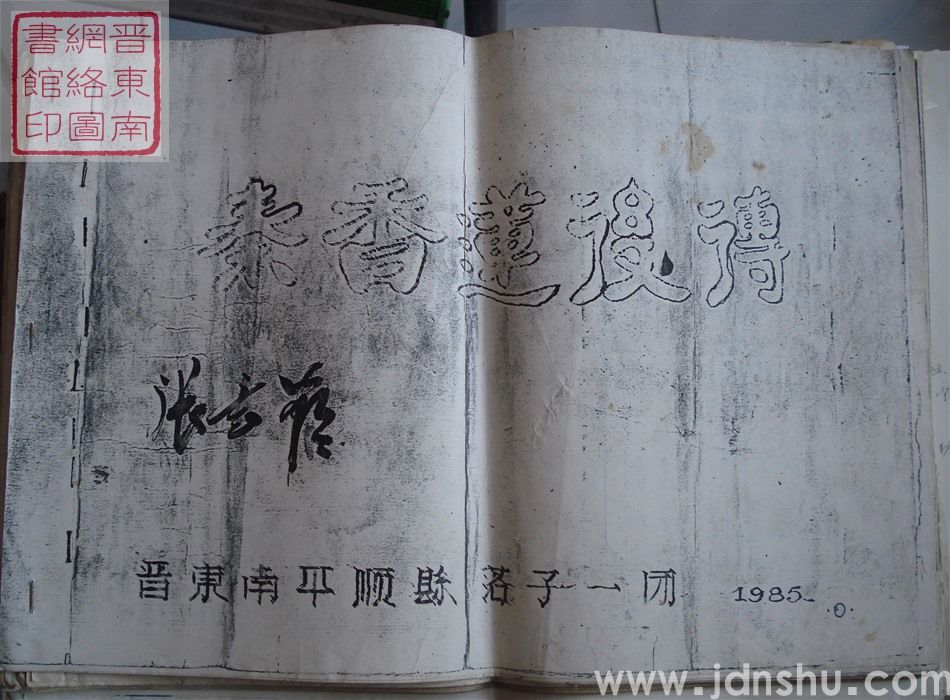 晋東南
網絡圖
書館印
秦香蓮後傳
張
晋東南平顺縣落子一团 1985.
www.jdnshu.com